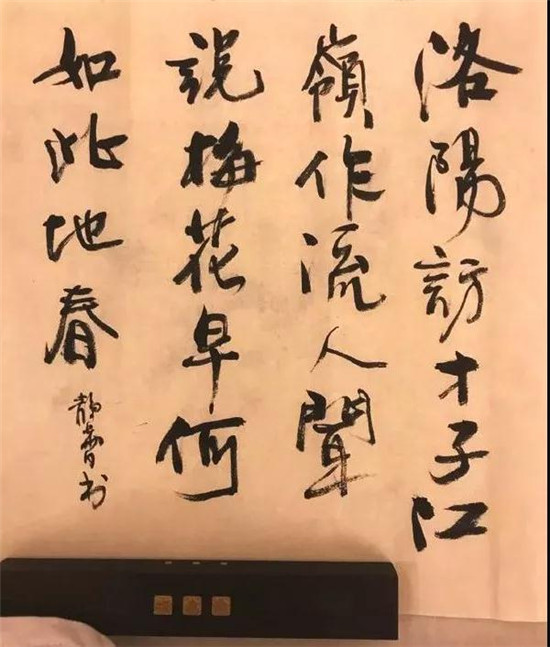 洛陽訪才子江
嶺作流人聞
說梅花早何
如此地春
靜書书